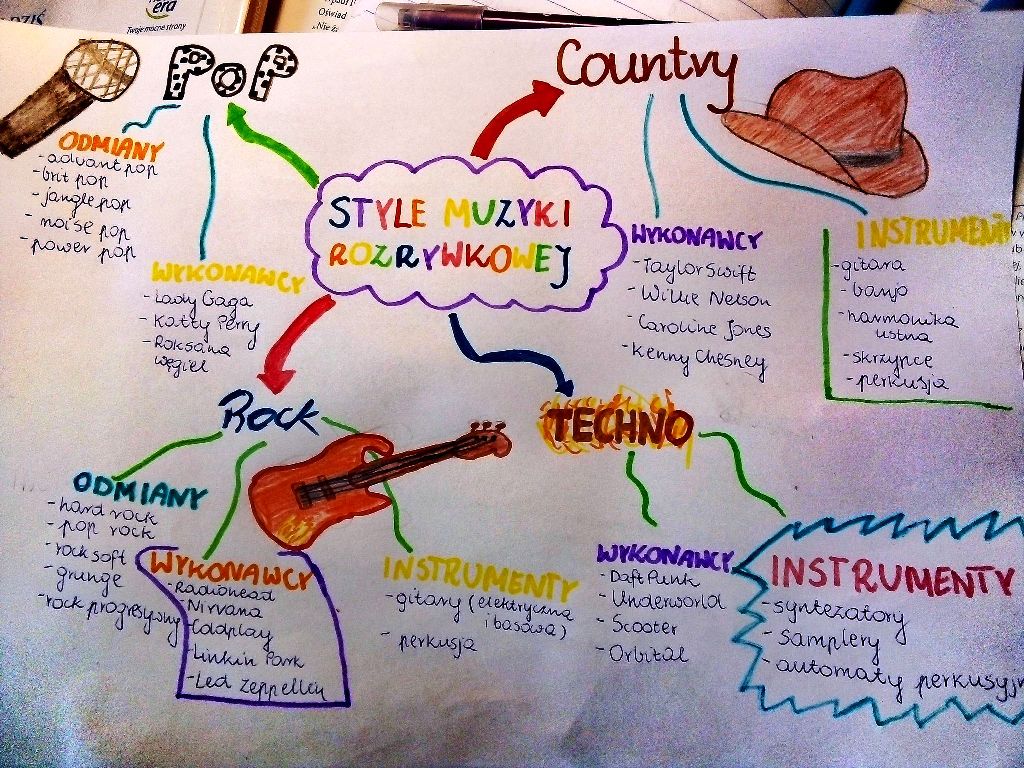 era
Twoje mocne strony
Oświad
Pop
Country
ODMIANY
- advant pop
- brit pop
- jangle pop
- noise pop
- power pop
WYKONAWCY
- Lady Gaga
- Katty Perry
- Roksana
węgiel
STYLE MUZYKI
ROZRYWKOWEJ
WYKONAWCY
- Taylor Swift
- Willie Nelson
- Caroline Jones
- Kenny Chesney
INSTRUMENTY
- gitara
- banjo
- harmonika
ustna
- skrzypce
- perkusja
Rock
TECHNO
ODMIANY
- hard rock
- pop rock
- rock soft
- grunge
- rock progresywny
WYKONAWCY
- Radiohead
- Nirvana
- Coldplay
- Linkin Park
- Led Zeppelin
INSTRUMENTY
- gitary (elektryczna
i basowa)
- perkusja
WYKONAWCY
- Daft Punk
- Underworld
- Scooter
- Orbital
INSTRUMENTY
- syntezatory
- Samplery
- automaty perkusyjn